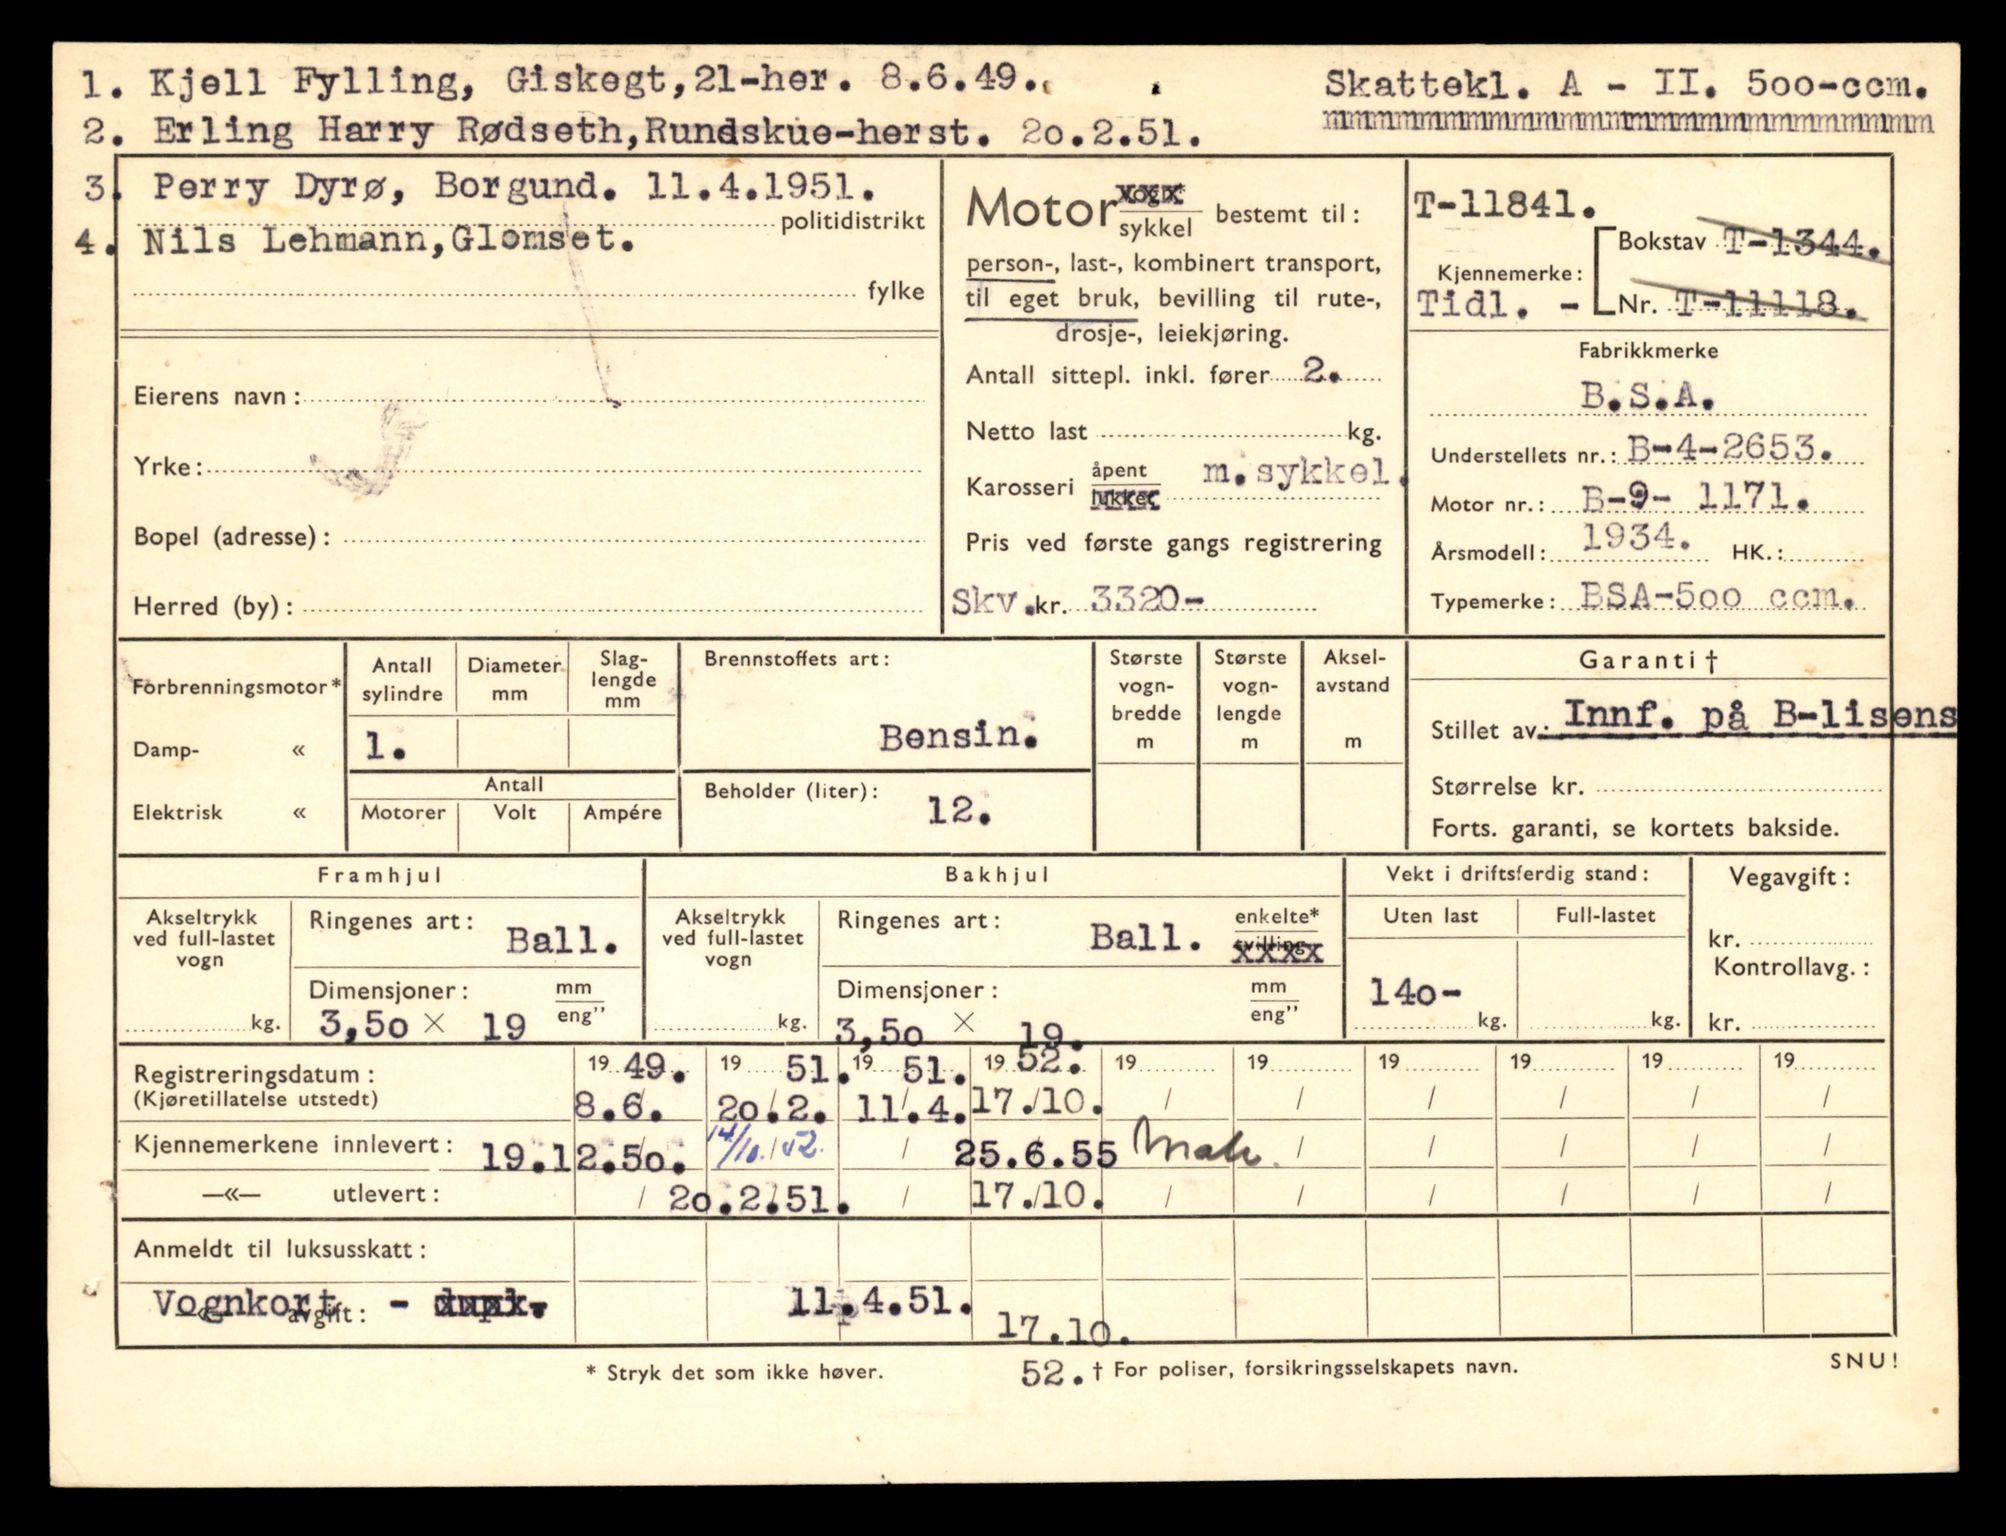 1. Kjell Fylling, Giskegt,21-her. 8.6.49. Skattekl. A - II. 5oo-ccm.
2. Erling Harry Rødseth,Rundskue-herst. 2o.2.51. mmmmmmmmmmmmmmmmmmmmmmmmm
3. Perry Dyrø, Borgund. 11.4.1951.
politidistrikt
4. Nils Lehmann,Glomset.
fylke
Eierens navn:
Yrke:
Bopel (adresse):
Herred (by):
Motor vogn* xxx
sykkel bestemt til:
person-, last-, kombinert transport,
til eget bruk, bevilling til rute-,
drosje-, leiekjøring.
Antall sittepl. inkl. fører 2.
Netto last kg.
Karosseri åpent m.sykkel.
lukket
Pris ved første gangs registrering
Skv. kr. 3320-
T-11841.
Bokstav T-1344.
Kjennemerke:
Tidl. - Nr. T-11118.
Fabrikkmerke
B.S.A.
Understellets nr.: B-4-2653.
Motor nr.: B-9- 1171.
Årsmodell: 1934. HK.:
Typemerke: BSA-5oo ccm.
Forbrenningsmotor*
Damp- «
Elektrisk «
Antall sylindre
Diameter mm
Slag-lengde mm
1.
Antall
Motorer Volt Ampére
Brennstoffets art:
Bensin.
Beholder (liter):
12.
Største vogn-bredde m
Største vogn-lengde m
Aksel-avstand m
Garanti†
Stillet av: Innf. på B-lisens
Størrelse kr.
Forts. garanti, se kortets bakside.
Framhjul
Akseltrykk ved full-lastet vogn
kg.
Ringenes art: Ball.
Dimensjoner: mm
eng”
3,5o × 19
Bakhjul
Akseltrykk ved full-lastet vogn
kg.
Ringenes art: Ball. enkelte*
tvilling xxxx
Dimensjoner: mm
eng”
3,5o × 19.
Vekt i driftsferdig stand:
Uten last Full-lastet
14o- kg. kg.
Vegavgift:
kr.
Kontrollavg.:
kr.
Registreringsdatum: 19 49. 19 51. 19 51. 19 52. 19 19 19 19 19 19
(Kjøretillatelse utstedt) 8.6. 2o.2. 11.4. 17.10. / / / / / /
Kjennemerkene innlevert: 19.12.5o. 14/10.52. / 25.6.55 / / / / /
—«— utlevert: / 2o.2.51. / 17.10. / / / / / /
Anmeldt til luksusskatt:
Vognkort - dupl. 11.4.51.
—«— avgift: 17.10.
* Stryk det som ikke høver. 52. † For poliser, forsikringsselskapets navn. SNU!